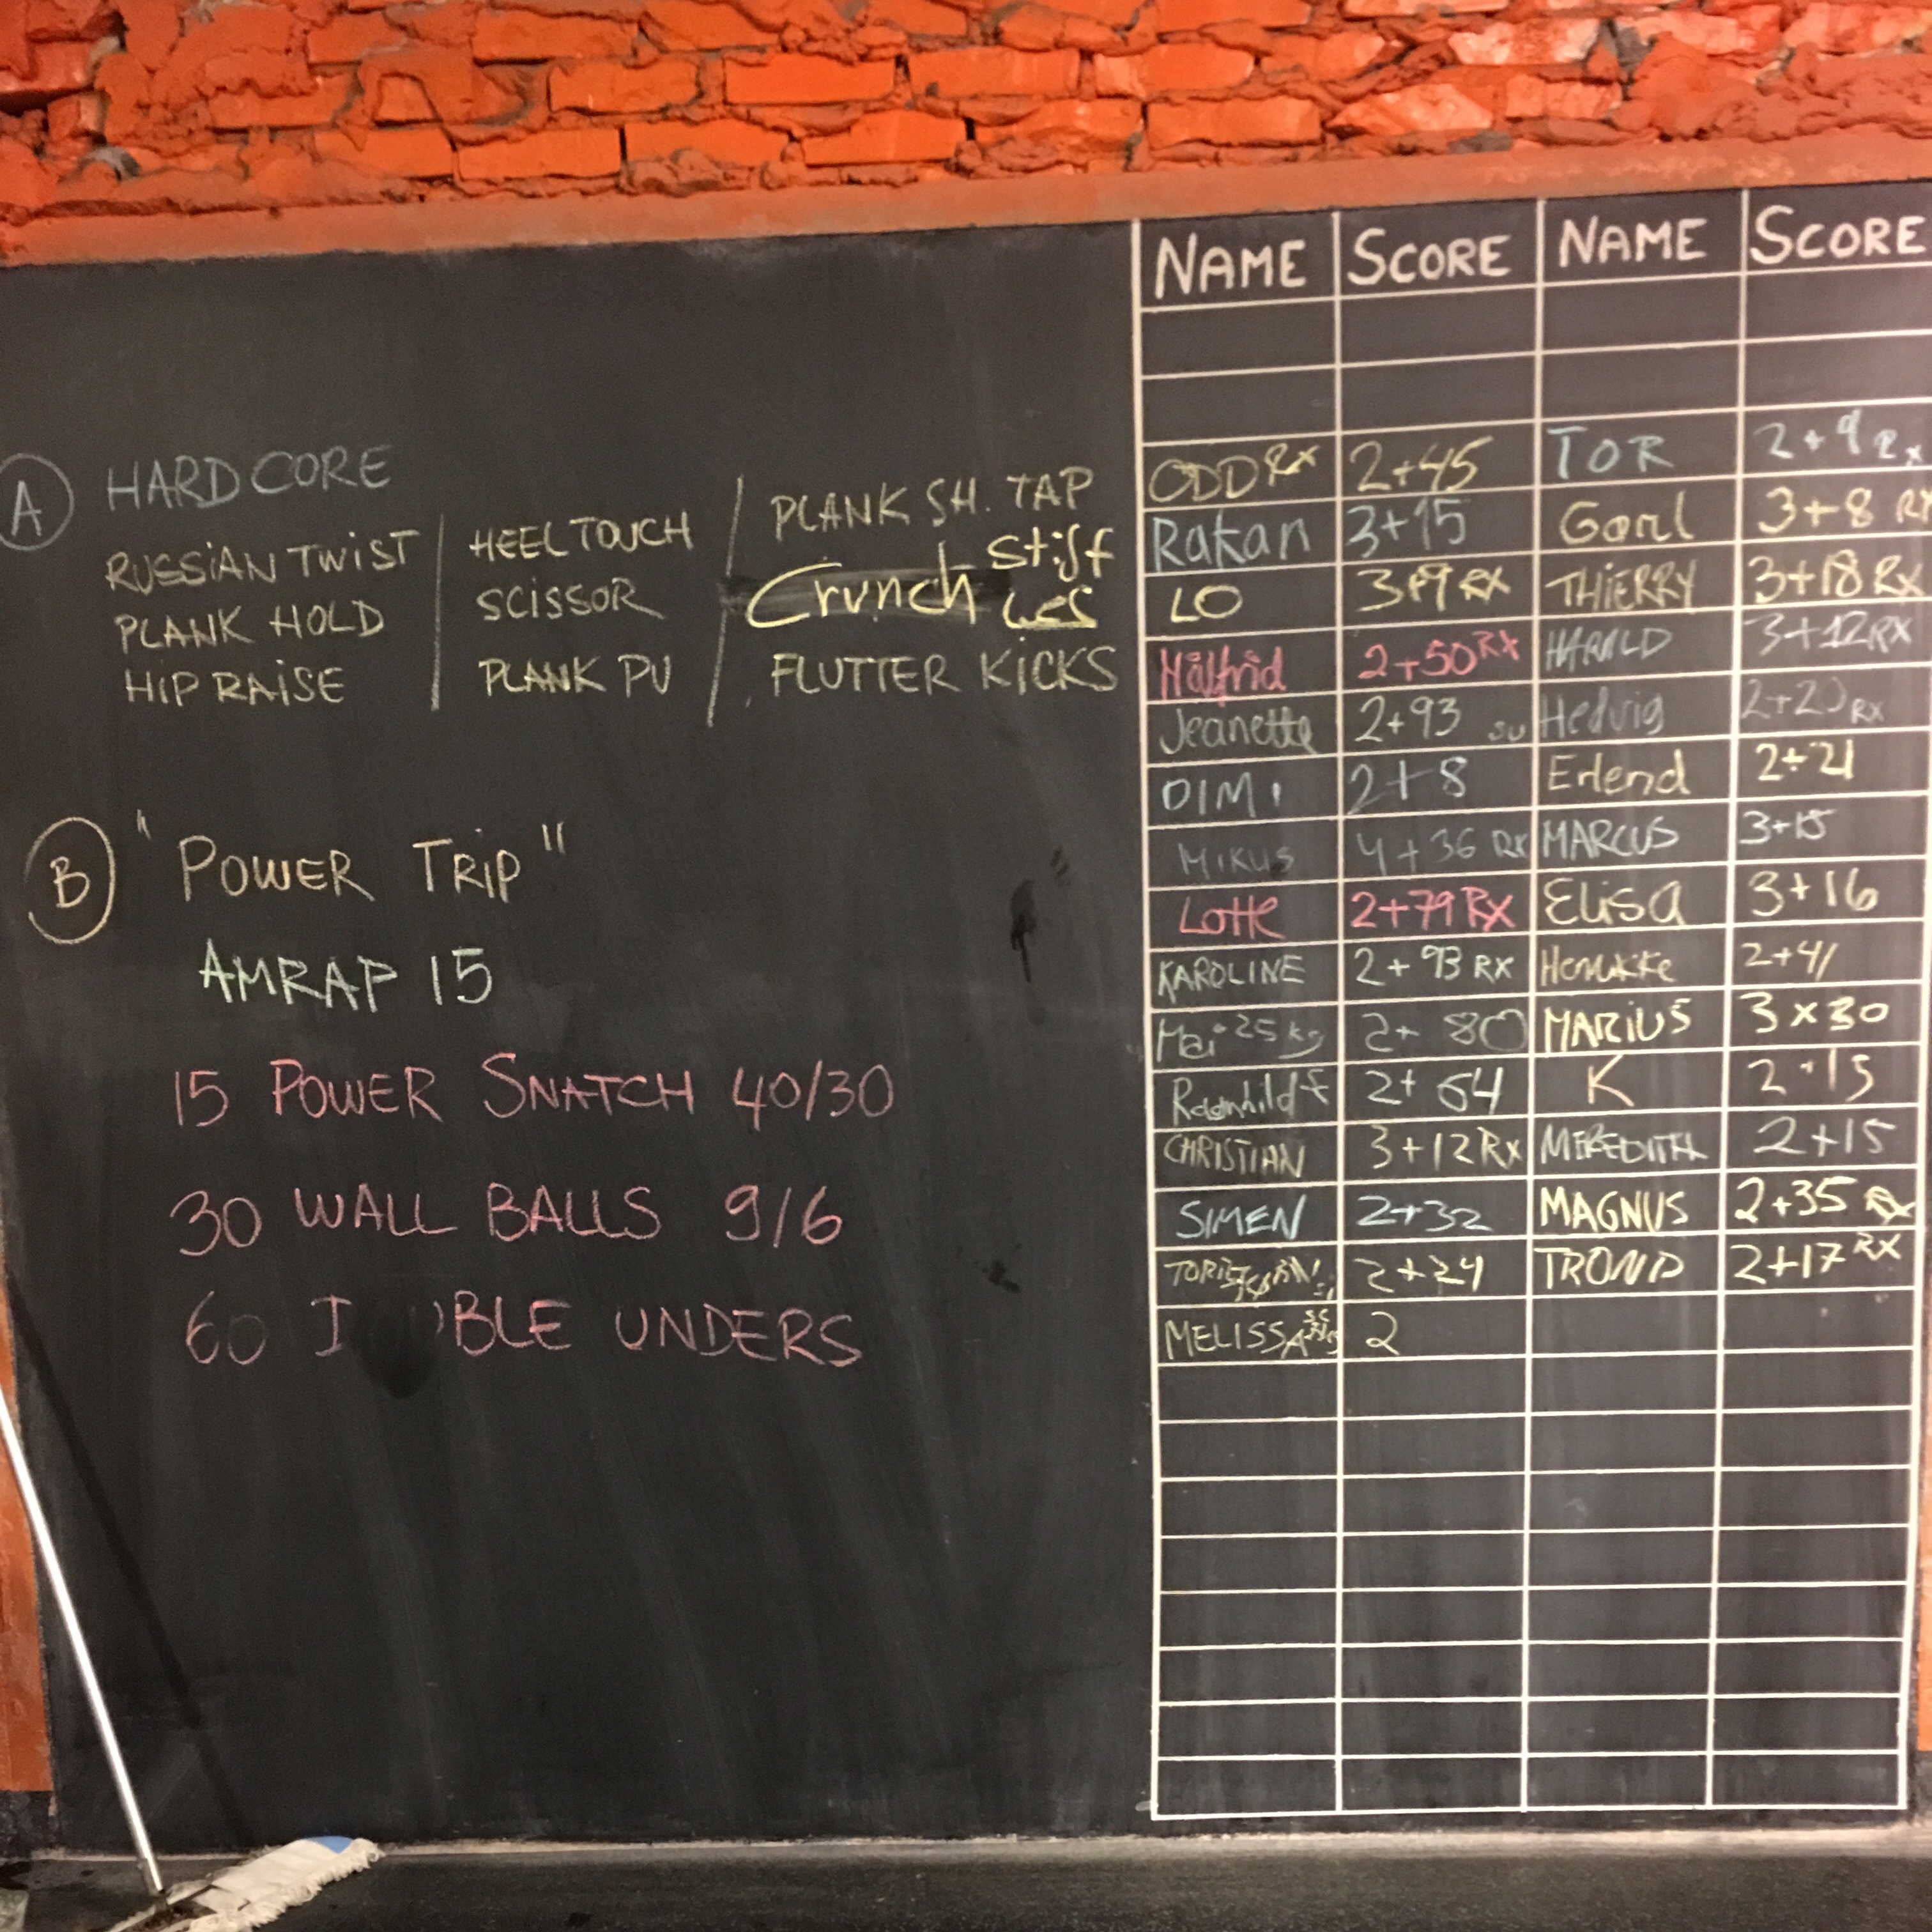 A HARDCORE
RUSSIAN TWIST / HEEL TOUCH / PLANK SH. TAP
PLANK HOLD SCISSOR Crunch Stiff
LES
HIP RAISE PLANK PU FLUTTER KICKS
B "POWER TRIP"
AMRAP 15
15 POWER SNATCH 40/30
30 WALL BALLS 9/6
60 UNDERS
NAME SCORE NAME SCORE
ODD RX 2+45 TOR 2+9 RX
Rakan 3+15 3+8 RX
LO RX THIERRY 3+18 RX
2+50 RX HARALD 3+12 RX
Jeanette 2+93 SU Hedvig 2+20 RX
DIMI 2+8 Erlend 2+21
MIKUS 4+36 RX MARCUS 3+15
Lotte 2+79 RX Elisa 3+16
KAROLINE 2+93 RX 2+41
Mai 25 kg 2+80 MARIUS 3x30
2+64 K 2+15
CHRISTIAN 3+12 RX MEREDITH 2+15
SIMEN 2+32 MAGNUS 2+35 RX
2+24 TROND 2+17 RX
MELISSA 2